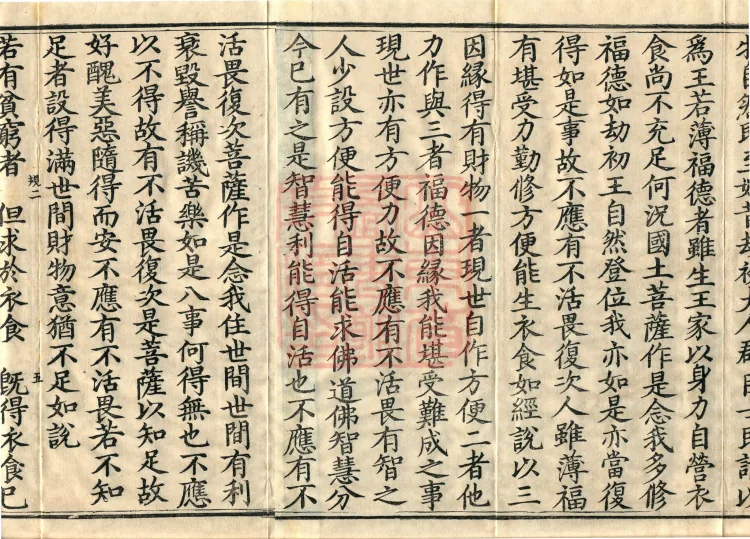 為王若薄福德者雖生王家以身力自營衣
食尚不充足何況國土菩薩作是念我多修
福德如劫初王自然登位我亦如是亦當復
得如是事故不應有不活畏復次人雖薄福
有堪受力勤修方便能生衣食如經說以三
因緣得有財物一者現世自作方便二者他
力作與三者福德因緣我能堪受難成之事
現世亦有方便力故不應有不活畏有智之
人少設方便能得自活能求佛道佛智慧分
今已有之是智慧利能得自活也不應有不
活畏復次菩薩作是念我住世間世間有利
衰毀譽稱譏苦樂如是八事何得無也不應
以不得故有不活畏復次是菩薩以知足故
好醜美惡隨得而安不應有不活畏若不知
足者設得滿世間財物意猶不足如說
規二 五
若有貧窮者 但求於衣食 既得衣食已